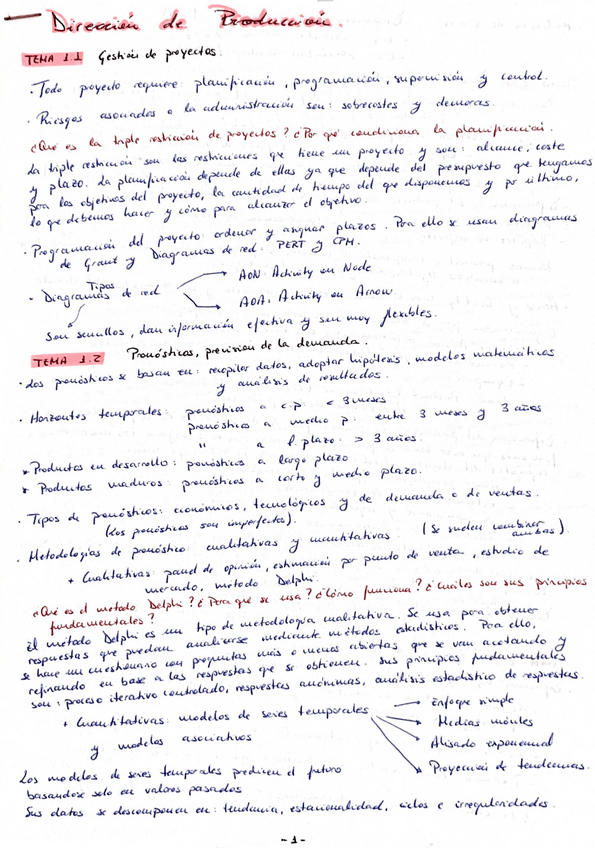 Dirección de Producción.
TEMA 1.1 Gestión de proyectos.
· Todo poyecto requiere: planificación, programación, supervisión y control.
· Riesgos asociados a la administración son: sobrecostes y demoras.
¿Qué es la triple restricción de proyectos? ¿Por qué condiciona la planificación.
La triple restricción son las restricciones que tiene un proyecto y son: alcance, coste
y plazo. La planificación depende de ellas ya que depende del presupuesto que tengamos
para los objetivos del proyecto, la cantidad de tiempo del que disponemos y por último,
lo que debemos hacer y cómo para alcanzar el objetivo.
· Programación del proyecto: ordenar y asignar plazos. Para ello se usan diagramas
de Grant y Diagramas de red: PERT y CPM.
Tipos
· Diagramas de red
AON: Activity on Node
AOA: Activity on Arrow
Son sencillos, dan información efectiva y son muy flexibles.
TEMA 1.2 Pronósticos, previsión de la demanda.
· Los pronósticos se basan en: recopilar datos, adoptar hipótesis, modelos matemáticos
y análisis de resultados.
· Horizontes temporales: pronósticos a c.p: < 3 meses
pronósticos a medio p: entre 3 meses y 3 años
" a l. plazo: > 3 años.
* Productos en desarrollo: pronósticos a largo plazo
* Productos maduros: pronósticos a corto y medio plazo.
· Tipos de pronósticos: económicos, tecnológicos y de demanda o de ventas.
(Los pronósticos son imperfectos).
· Metodologías de pronóstico: cualitativas y cuantitativas (Se suelen combinar
ambas).
+ Cualitativas: panel de opinión, estimación por punto de venta, estudio de
mercado, método Delphi.
¿Qué es el metodo Delphi? ¿Para qué se usa? ¿Cómo funciona? ¿Cuáles son sus principios
fundamentales?
El método Delphi es un tipo de metodología cualitativa. Se usa para obtener
respuestas que puedan analizarse mediante métodos estadísticos. Para ello,
se hace un cuestionario con preguntas más o menos abiertas que se van acotando y
refinando en base a las respuestas que se obtienen. Sus principios fundamentales
son: proceso iterativo controlado, respuestas anónimas, análisis estadístico de respuestas.
+ Cuantitativas: modelos de series temporales
y modelos asociativos
Enfoque simple
Medias móviles
Alisado exponencial
Proyección de tendencias.
Los modelos de series temporales predicen el futuro
basandose solo en valores pasados
Sus datos se descomponen en: tendencia, estacionalidad, ciclos e irregularidades.
- 1 -